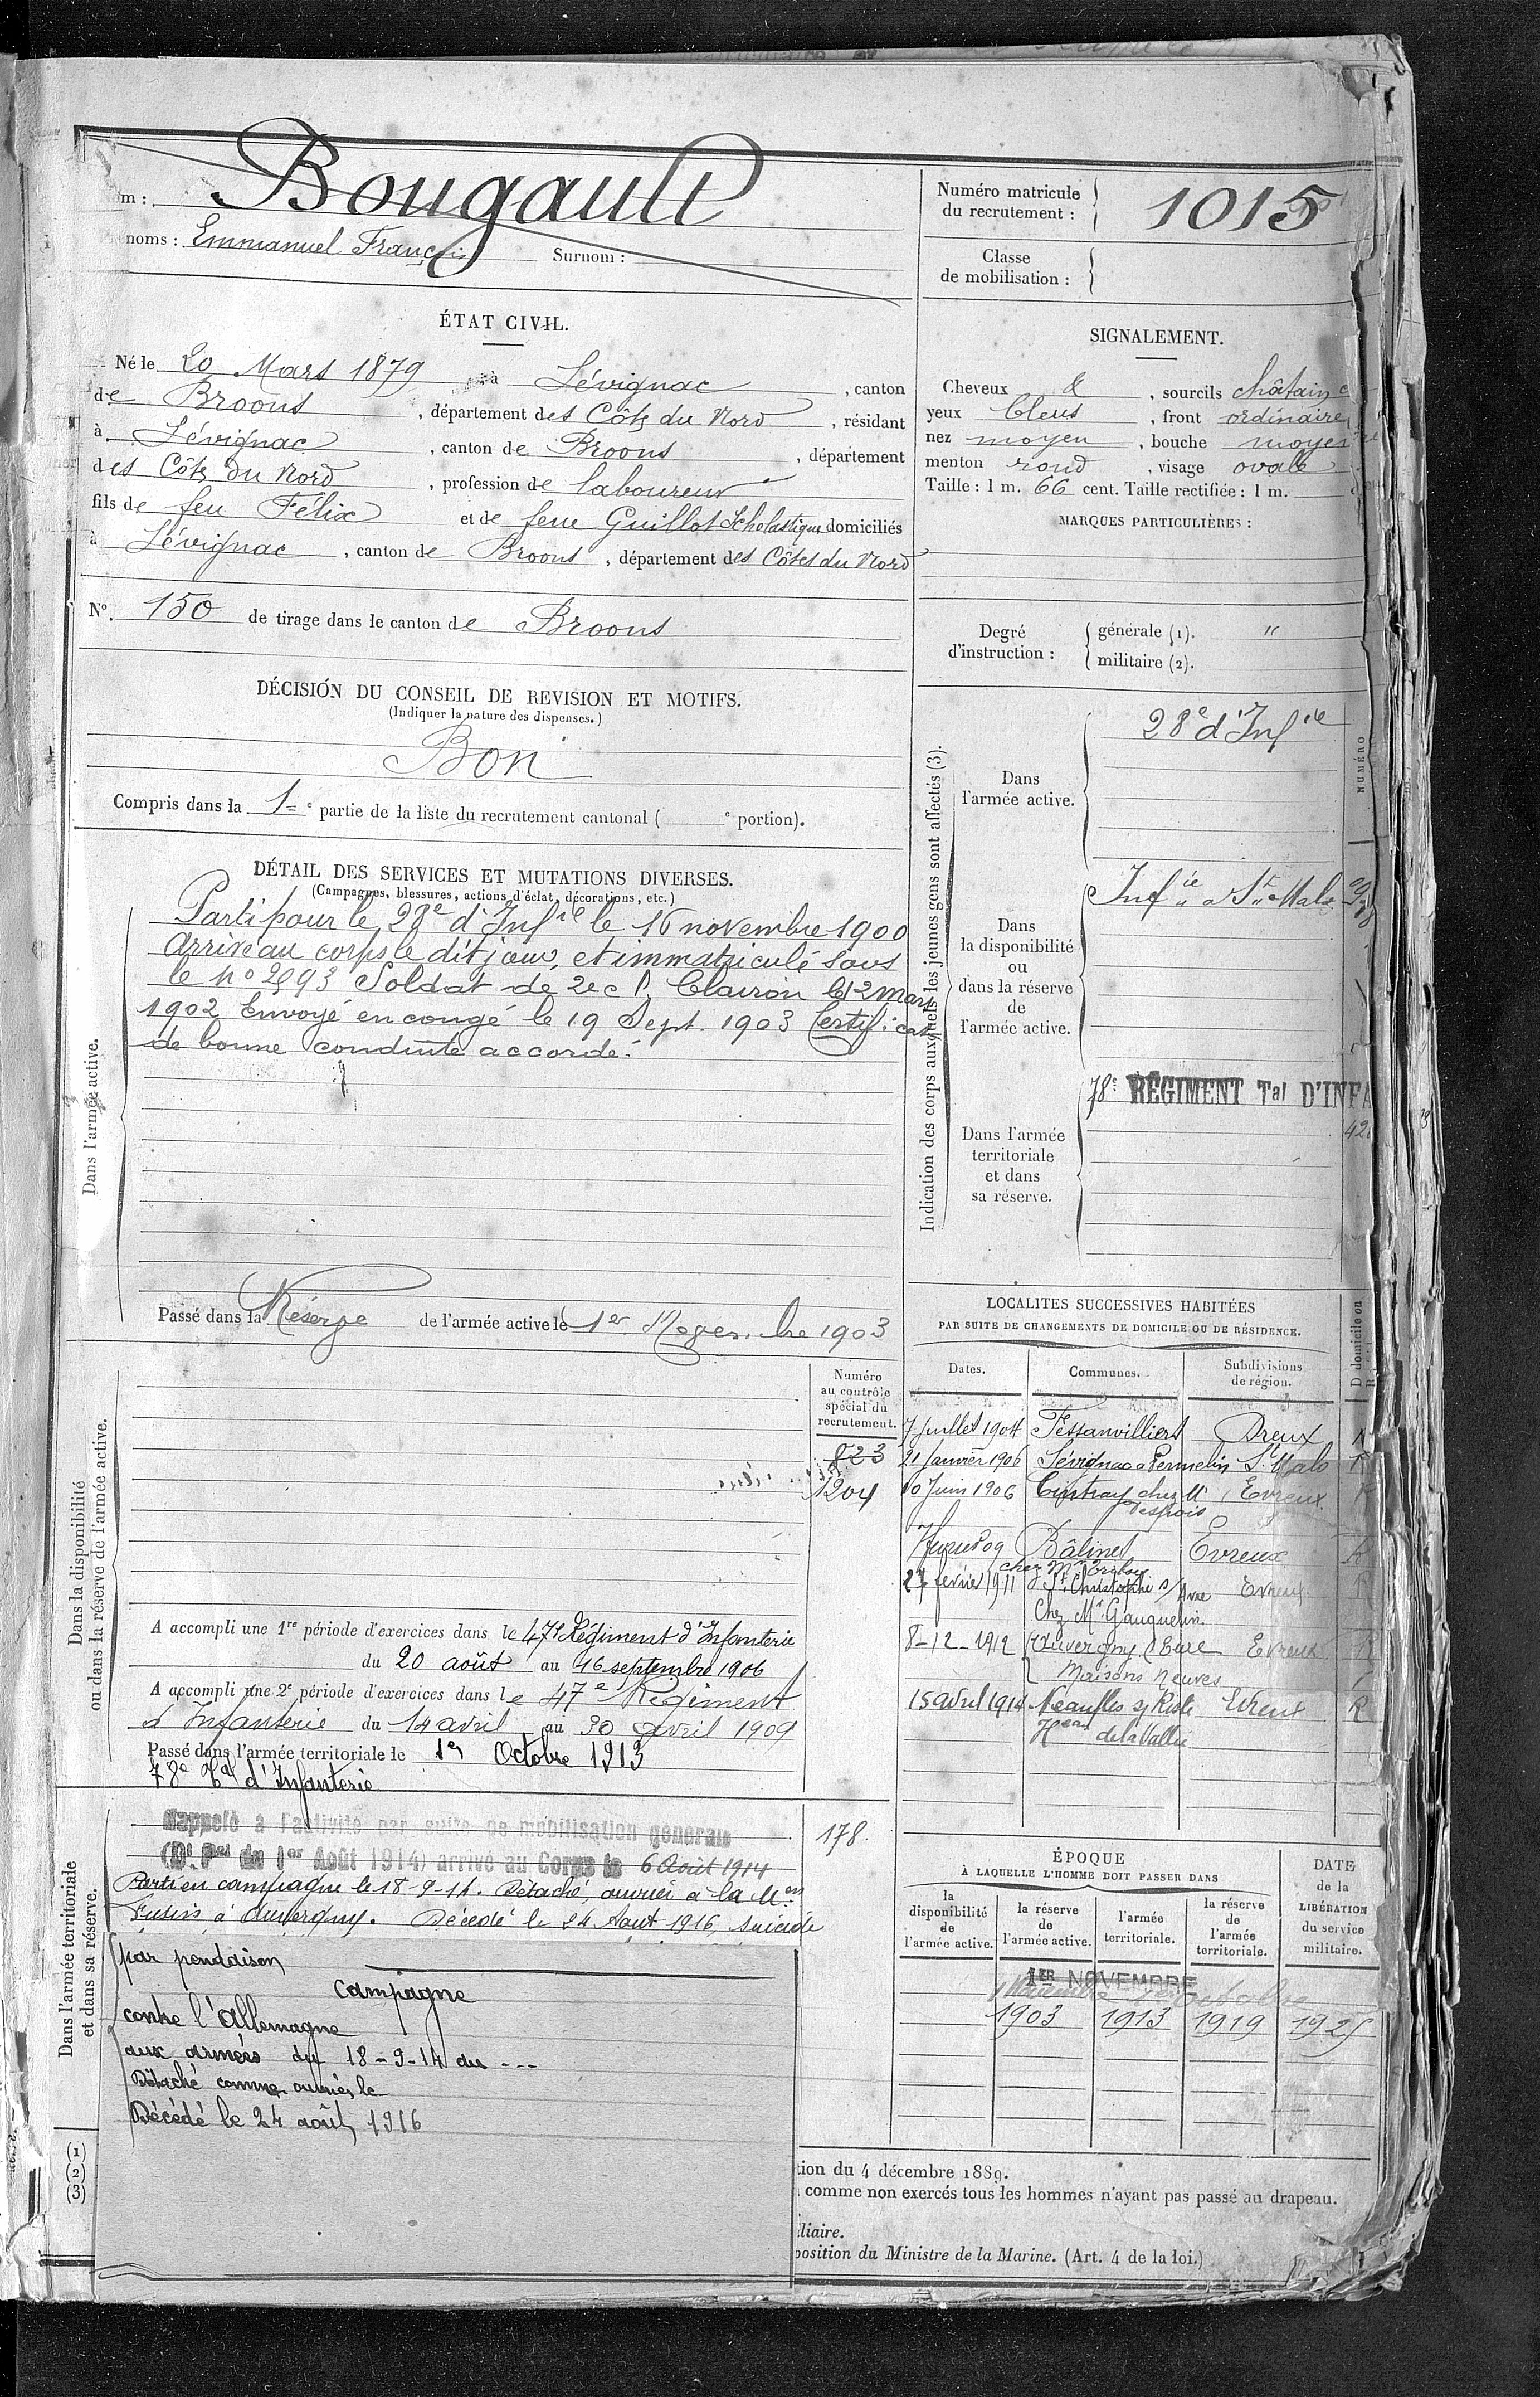 Nom : Bougault
Prénoms : Emmanuel François Surnom :
Numéro matricule
du recrutement : 1015
Classe
de mobilisation :
ÉTAT CIVIL.
Né le 20 Mars 1879 à Sévignac , canton
de Broons , département des Côtes du Nord , résidant
à Sévignac , canton de Broons , département
des Côtes du Nord , profession de laboureur
fils de feu Félix et de feue Guillot Scholastique domiciliés
à Sévignac , canton de Broons , département des Côtes du Nord
N° 150 de tirage dans le canton de Broons
SIGNALEMENT.
Cheveux & , sourcils châtains
yeux bleus , front ordinaire
nez moyen , bouche moyenne
menton rond , visage ovale
Taille : 1 m. 66 cent. Taille rectifiée : 1 m.
MARQUES PARTICULIÈRES :
Degré
d'instruction :
générale (1). "
militaire (2).
DÉCISION DU CONSEIL DE REVISION ET MOTIFS.
(Indiquer la nature des dispenses.)
Bon
Compris dans la 1e partie de la liste du recrutement cantonal ( e portion).
DÉTAIL DES SERVICES ET MUTATIONS DIVERSES.
(Campagnes, blessures, actions d'éclat, décorations, etc.)
Dans l'armée active.
Parti pour le 28e d'Infie le 16 novembre 1900
Arrivé au corps le dit jour, et immatriculé sous
le no 2893 Soldat de 2e cl. Clairon le 12 mars
1902 Envoyé en congé le 19 Sept. 1903 Certificat
de bonne conduite accordé.
Passé dans la Réserve de l'armée active le 1er Novembre 1903
Indication des corps auxquels les jeunes gens sont affectés (3).
Dans
l'armée active.
28e d'Infie
Dans
la disponibilité
ou
dans la réserve
de
l'armée active.
Infie St Malo
Dans l'armée
territoriale
et dans
sa réserve.
78e RÉGIMENT Tal D'INFA
NUMÉRO
LOCALITÉS SUCCESSIVES HABITÉES
PAR SUITE DE CHANGEMENTS DE DOMICILE OU DE RÉSIDENCE.
Dates. Communes. Subdivisions
de région.
D domicile ou
R
7 Juillet 1904 Fessanvilliers Dreux R
21 Janvier 1906 Sévignac a Permelin St Malo R
10 Juin 1906 Cintray chez Mr Evreux R
Despois
09 Bâlines Evreux R
chez Mr
27 février 1911 St Christophe s/ Avre Evreux R
Chez Mr Gauquelin.
8-12-1912 Auvergny Eure Evreux R
Maisons Neuves
15 avril 1914 Neaufles s/ Risle Evreux R
Heau de la Vallée
Dans la disponibilité
ou dans la réserve de l'armée active.
Numéro
au contrôle
spécial du
recrutement.
823
1204
A accompli une 1re période d'exercices dans le 47e Régiment d'Infanterie
du 20 août au 16 septembre 1906
A accompli une 2e période d'exercices dans le 47e Régiment
d'Infanterie du 14 avril au 30 avril 1909
Passé dans l'armée territoriale le 1er Octobre 1913
78e Tal d'Infanterie
Dans l'armée territoriale
et dans sa réserve.
Rappelé à l'activité par suite de mobilisation générale
(Dt Pel du 1er Août 1914) arrivé au Corps le 6 Août 1914
178.
Parti en campagne le 18-9-14. Détaché, ouvrier à la Mon
à Auvergny. Décédé le 24 Aout 1916, suicide
par pendaison
Campagne
contre l'Allemagne
aux armées du 18-9-14 au ---
Détaché comme ouvrier le
Décédé le 24 août 1916
ÉPOQUE
À LAQUELLE L'HOMME DOIT PASSER DANS
la
disponibilité
de
l'armée active.
la réserve
de
l'armée active.
l'armée
territoriale.
la réserve
de
l'armée
territoriale.
DATE
de la
LIBÉRATION
du service
militaire.
1ER NOVEMBRE
1903 1913 1919 1925
(1)
(2)
(3)
tion du 4 décembre 1889.
comme non exercés tous les hommes n'ayant pas passé au drapeau.
iliaire.
position du Ministre de la Marine. (Art. 4 de la loi.)